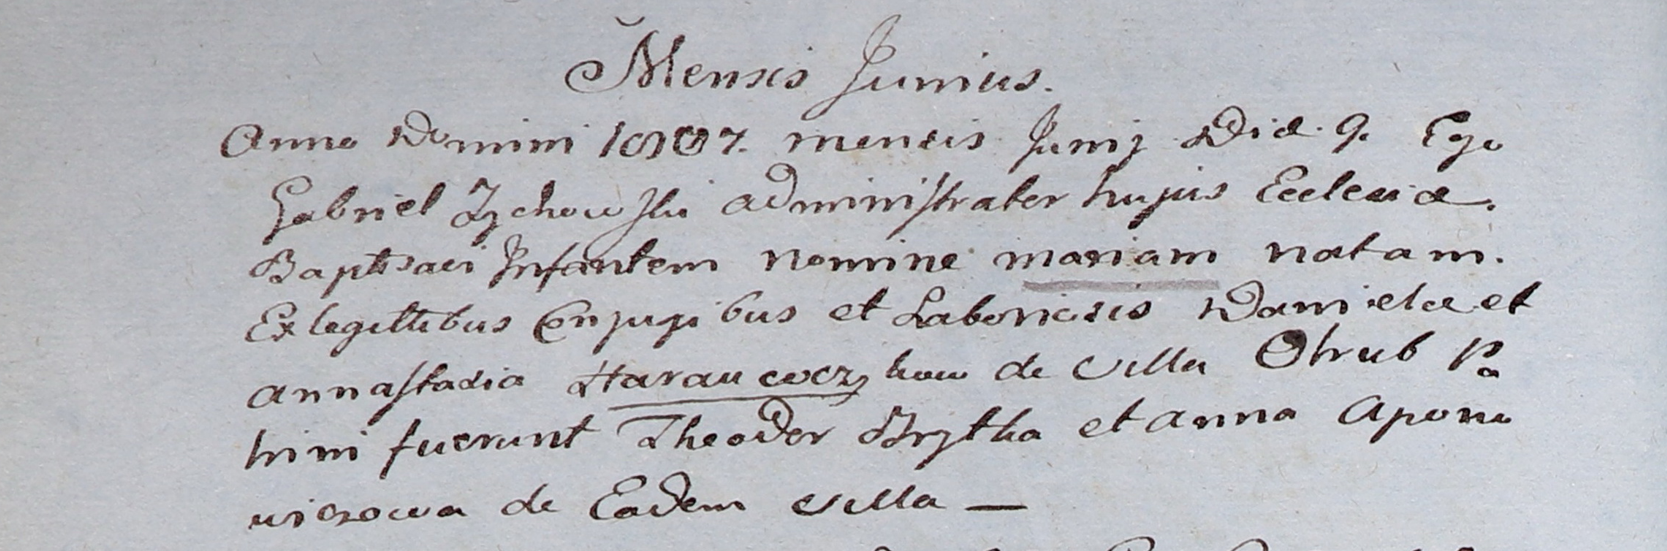 Mensis Junius.
Anno Domini 1807. mensis Junij Die 9. Ego
Gabriel Zychowski administrator hujus Ecclesiæ.
Baptisavi Infantem nomine mariam natam.
Ex legittibus Conjugibus et Laboriosis Daniele et
annastasia de villa Otrub Pa
trini fuerunt Theodor et anna Apono
wiczowa de Eadem villa —